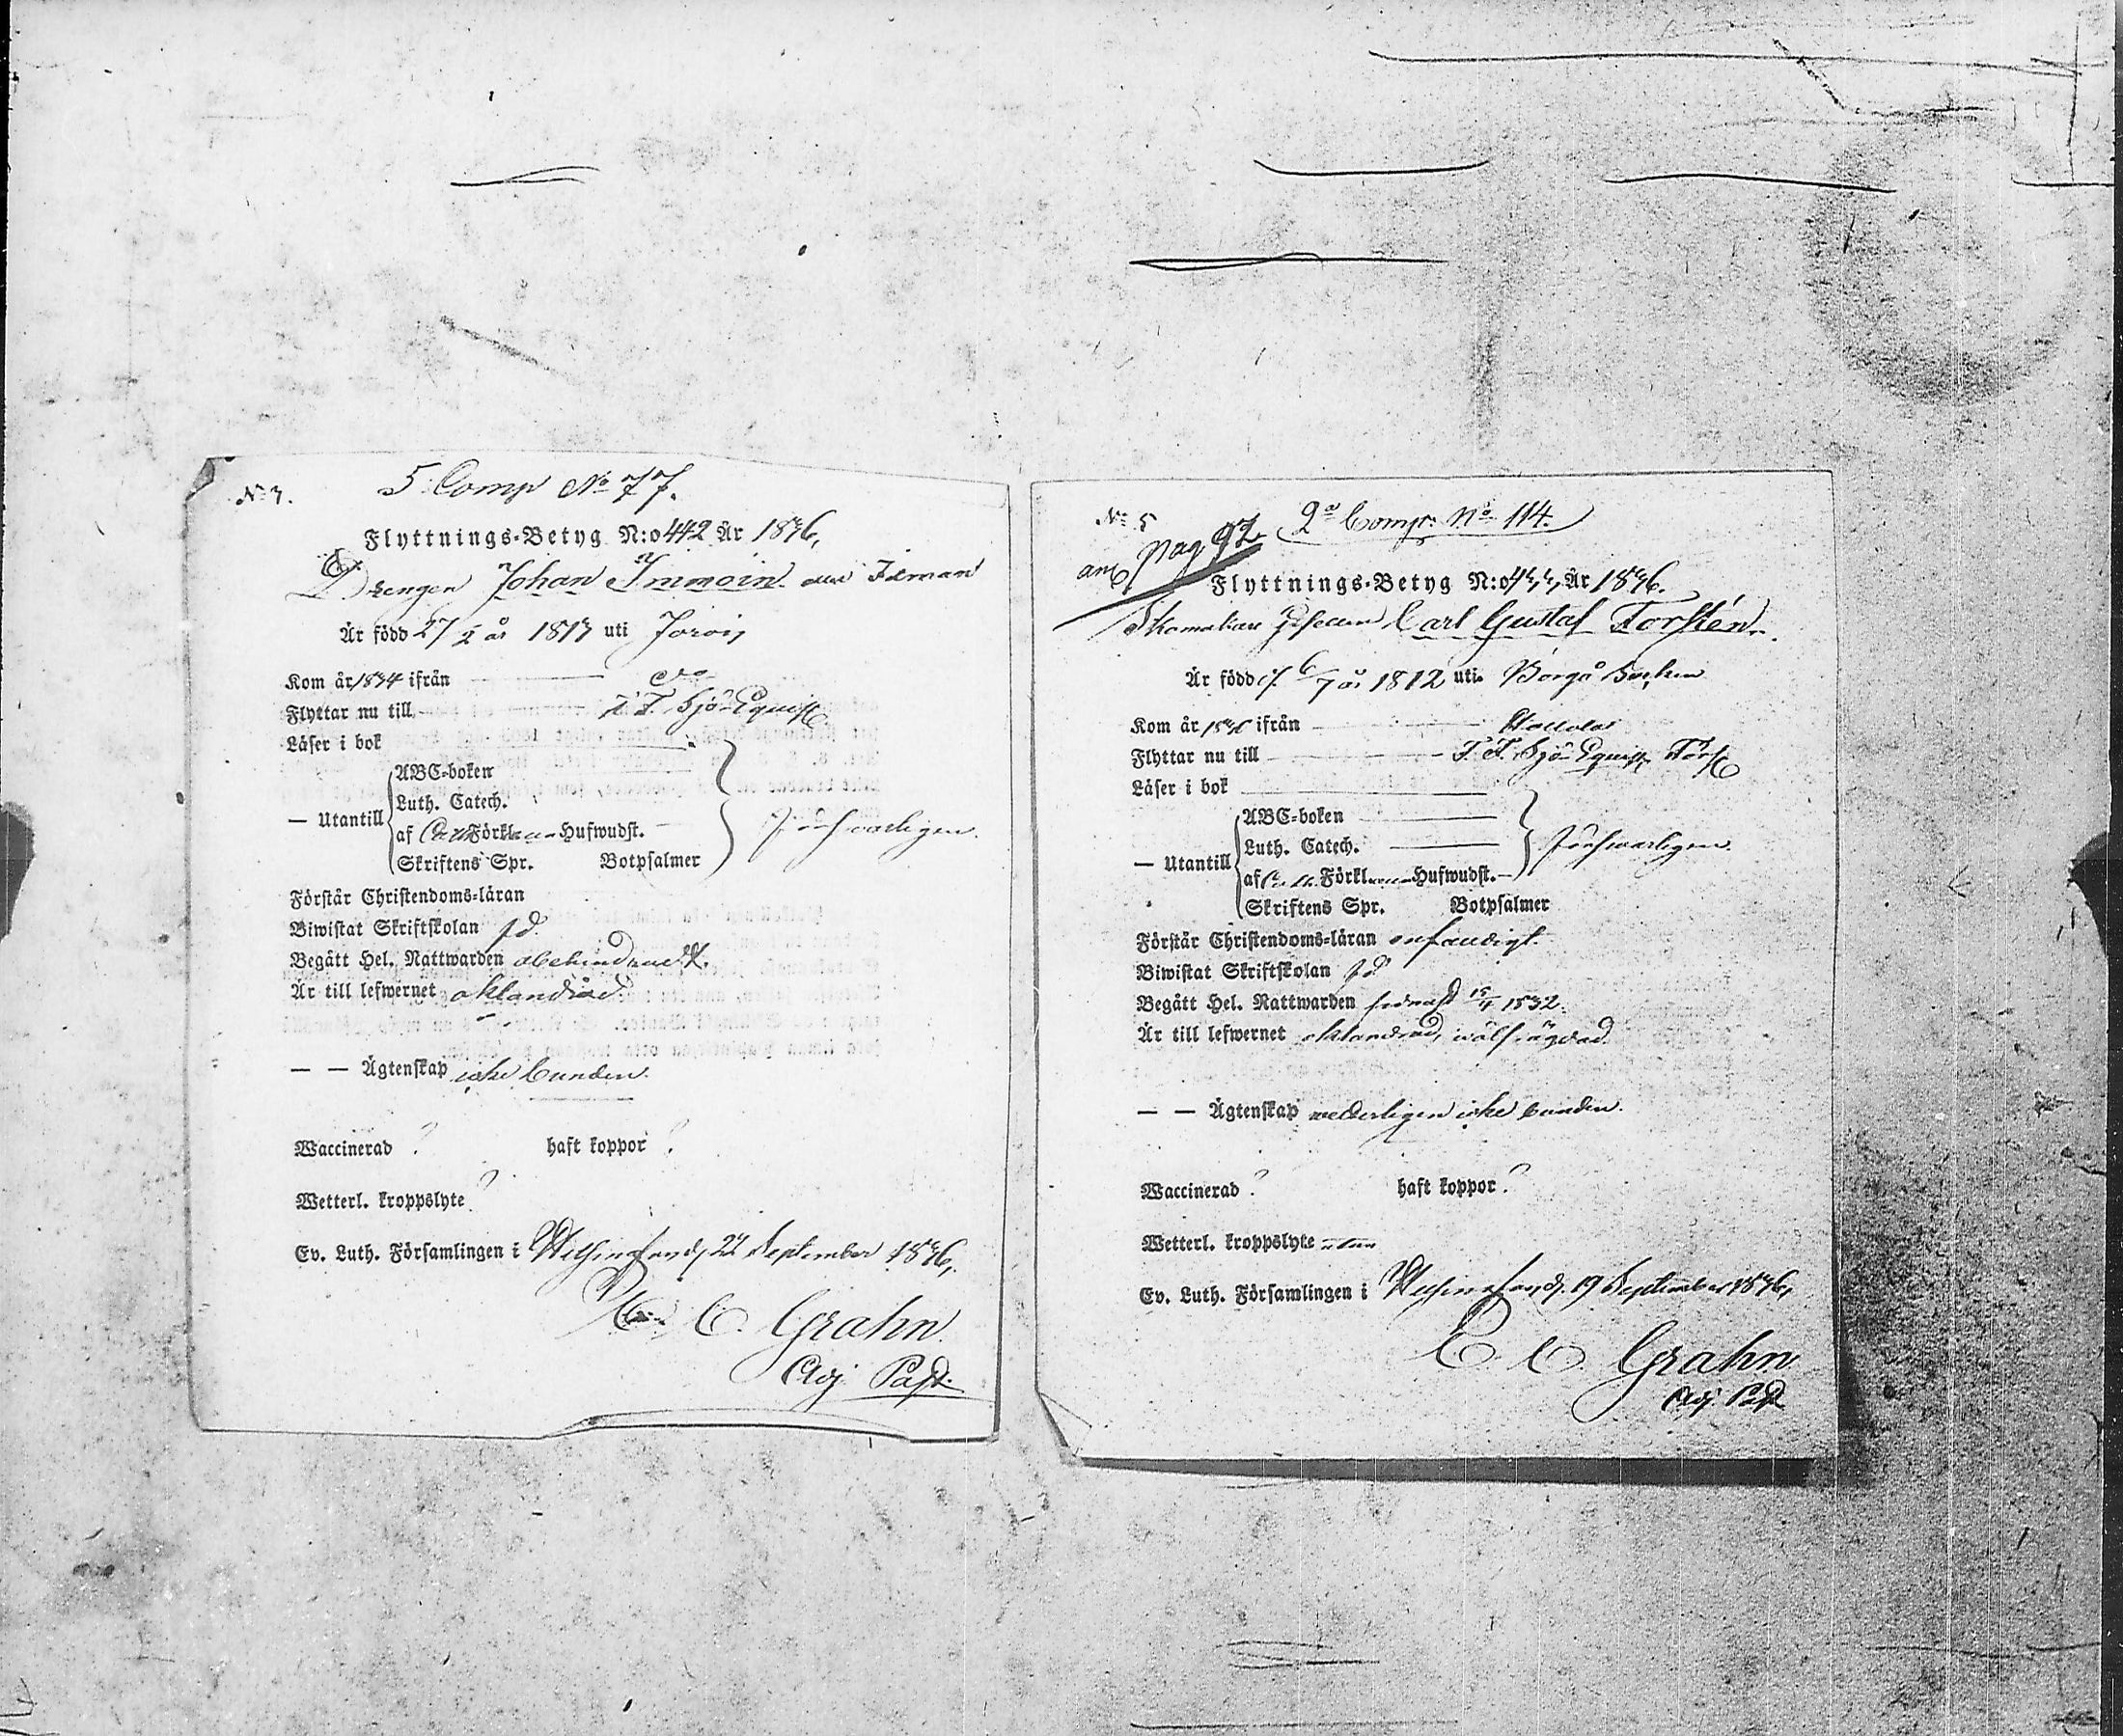 N:o 7.
5 Comp No 77.
Flyttnings-Betyg N:o 442 År 1836,
Drengen Johan Immoin eller Idman
Är född 27/2 år 1813 uti Jorois
Kom år 1834 ifrån do
Flyttar nu till F. F. Sjö-Equip.
Läser i bok
— Utantill
ABC-boken
Luth. Catech.
af Förkl. Hufwudst.
Skriftens Spr. Botpsalmer
försvarligen.
Förstår Christendoms-läran
Biwistat Skriftskolan
Begått Hel. Nattwarden obehindradt.
Är till lefwernet oklandrad
— — Ägtenskap icke bunden.
Waccinerad ? haft koppor ?
Wetterl. kroppslyte ?
Ev. Luth. Församlingen i Helsingfors, September 1836,
C. Grahn.
Adj. Past.
No 5
2a Comp. No 114.
pag 92
Flyttnings-Betyg N:o År 1836.
Skomakare Gesellen Carl Gustaf Forstén.
Är född d. 6/7 år 1812 uti Borgå Socken
Kom år ifrån Hollola
Flyttar nu till F. F. Sjö-Equip.
Läser i bok
— Utantill
ABC-boken
Luth. Catech.
af Förkl. Hufwudst.
Skriftens Spr. Botpsalmer
försvarligen.
Förstår Christendoms-läran enfaldigt.
Biwistat Skriftskolan
Begått Hel. Nattwarden sednast 1832.
Är till lefwernet oklandrad, wälfrägdad.
— — Ägtenskap wederligen icke bunden.
Waccinerad ? haft koppor ?
Wetterl. kroppslyte utan
Ev. Luth. Församlingen i Helsingfors, d. 19 September 1836,
C. C. Grahn
Adj. Past.